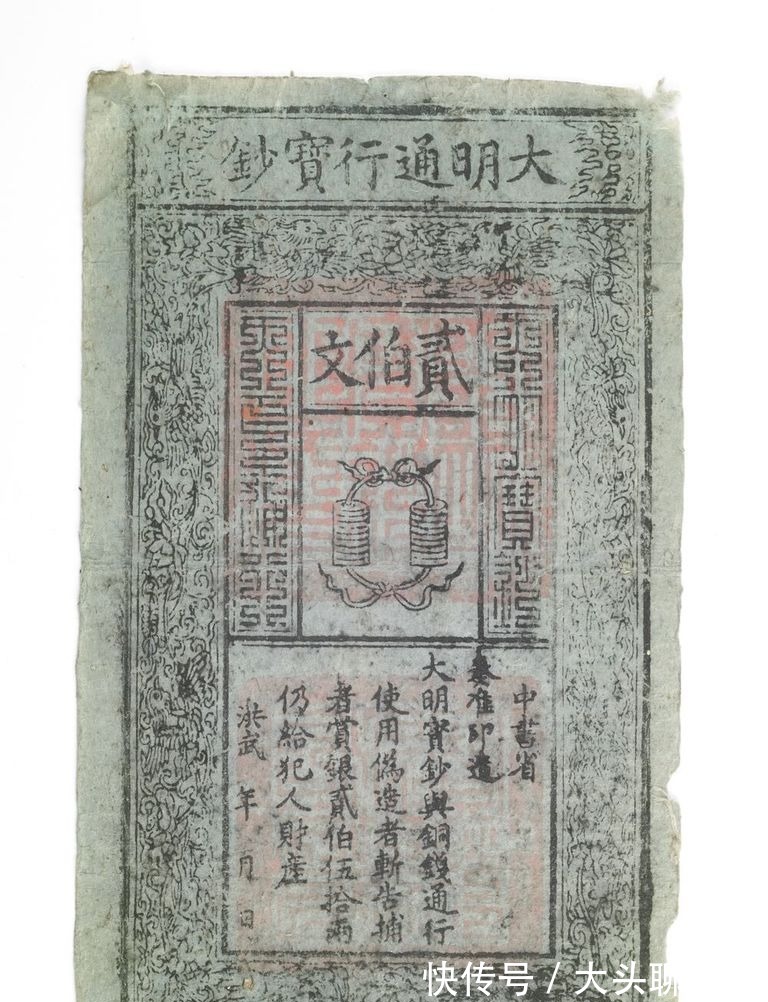 大明通行寶鈔
貳伯文
中書省
奏准印造
大明寶鈔與銅錢通行
使用僞造者斬告捕
者賞銀貳伯伍拾兩
仍給犯人財產
洪武 年 月 日
快传号 / 大头聊